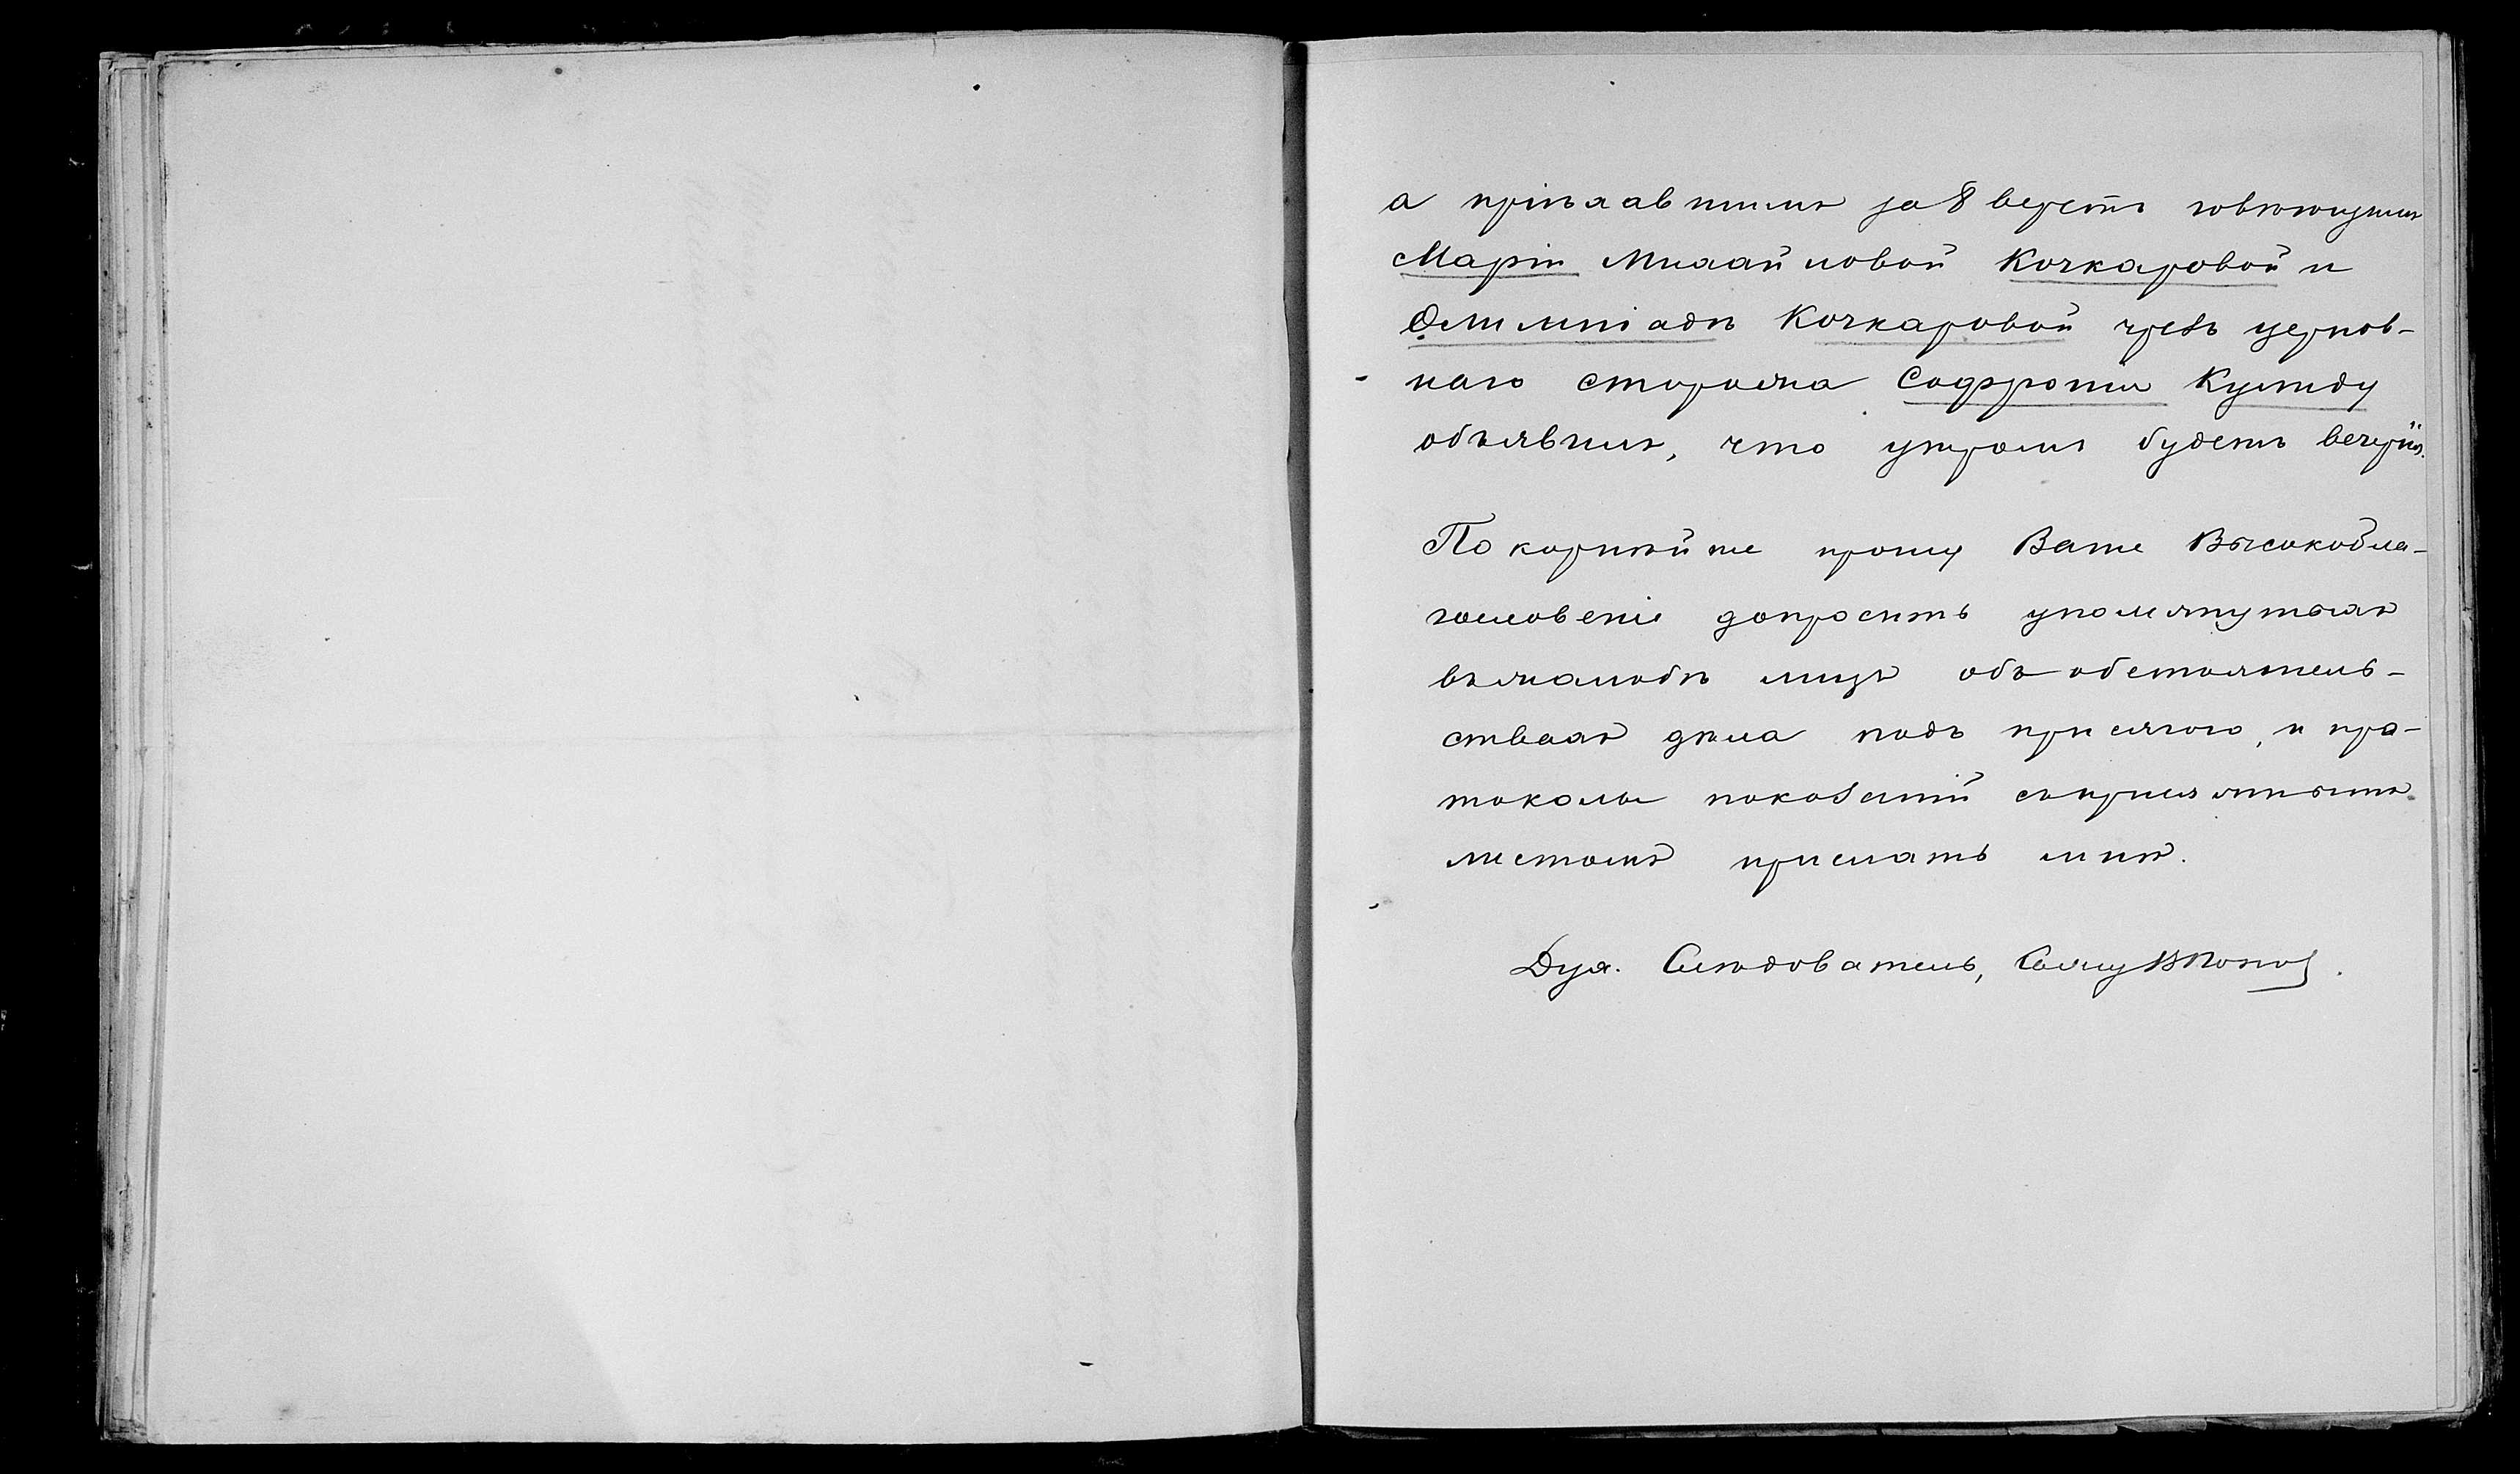 а пріѣхавшимъ за 8 верстъ говѣющимъ
Маріи Михайловой Кочкаровой и
Олимпіадѣ Кочкаровой чрезъ церков-
наго сторожа Софронія
объявилъ, что утромъ будетъ вечерня.
Покорнѣйше прошу Ваше Высокобла-
гословеніе допросить упомянутыхъ
въ жалобѣ лицъ объ обстоятель-
ствахъ дѣла подъ присягою, и про-
токолы показаній съ присяжнымъ
листомъ прислать мнѣ.
Дух. Слѣдователь, Свящ. В Попов.